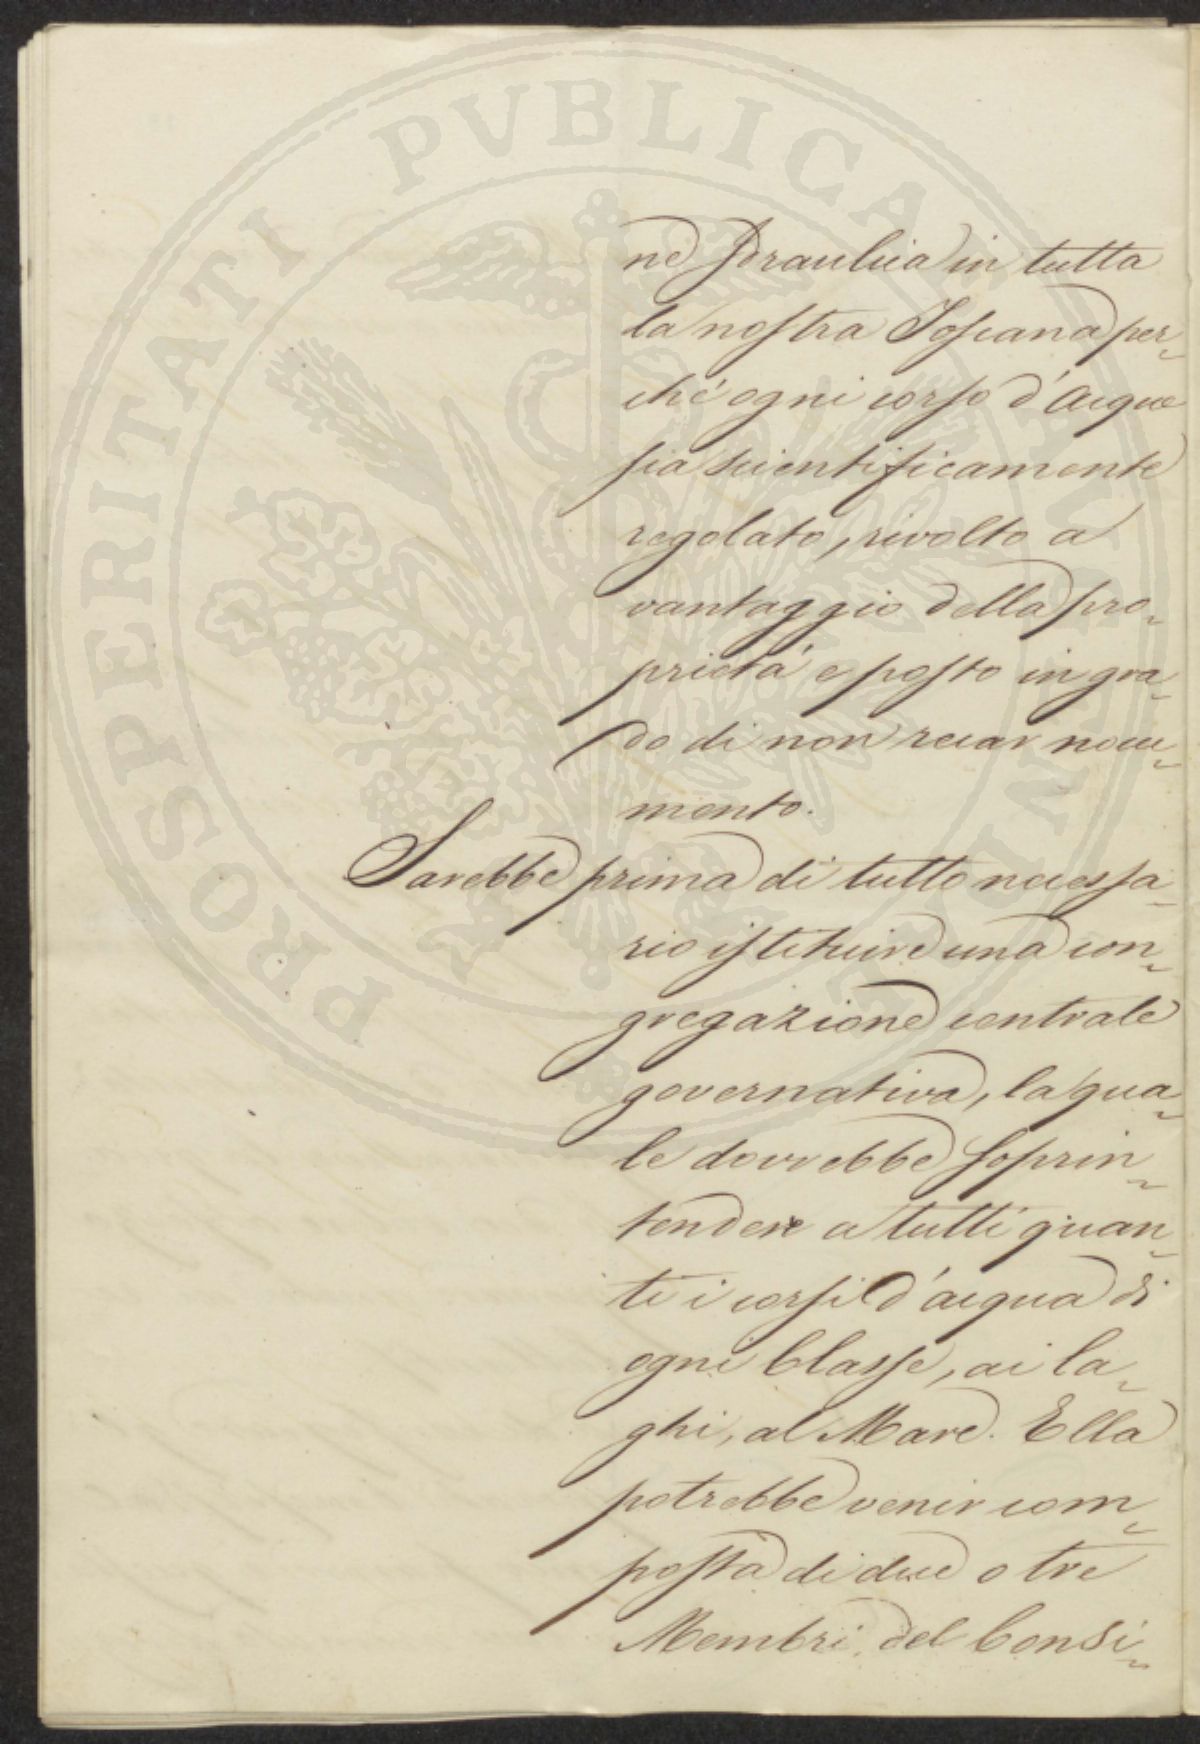 PROSPERITATI PVBLICAE AVGENDAE
ne Idraulica in tutta
la nostra Toscana per¬
ché ogni corso d'Acque
sia scientificamente
regolato, rivolto a
vantaggio della pro¬
prietà e posto in gra¬
do di non recar nocu¬
mento.
Sarebbe prima di tutto necessa¬
rio istituire una con¬
gregazione centrale
governativa, la qua¬
le dovrebbe soprin¬
tendere a tutti quan¬
ti i corsi d'acqua di
ogni Classe, ai la¬
ghi, al Mare. Ella
potrebbe venir com¬
posta di due o tre
Membri del Consi¬